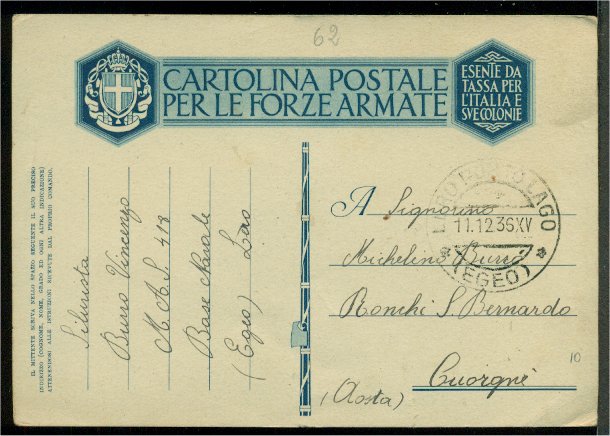 62
CARTOLINA POSTALE
PER LE FORZE ARMATE
ESENTE DA
TASSA PER
L'ITALIA E
SVE COLONIE
IL MITTENTE SCRIVA NELLO SPAZIO SEGUENTE IL SUO PRECISO
INDIRIZZO (COGNOME, NOME, GRADO ED OGNI ALTRA INDICAZIONE)
ATTENENDOSI ALLE ISTRUZIONI RICEVUTE DAL PROPRIO COMANDO.
Silurista
Burro Vincenzo
M.A.S. 418
Base Navale
(Egeo) Lero
LAGO
11.12 36 XV
(EGEO)
A Signorino
Michelino Burro
Ronchi S. Bernardo
Cuorgnè
(Aosta)
10